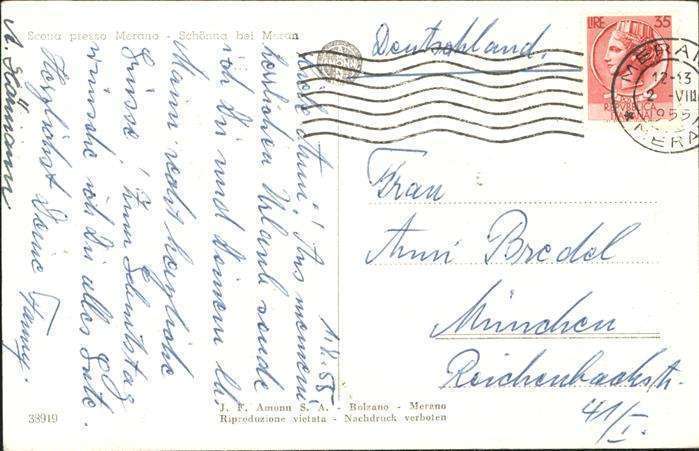 Scena presso Merano - Schönna bei Meran
Deutschland.
LIRE 35
REPVBBLICA
MERANO
12-13
2 -VIII
1955
MERANO
Frau
Anni Bredel
München
Reichenbachstr.
41/I.
1.8.55.
Liebe Anni! Aus meinem
herrlichen Urlaub sende
ich Dir und Deinem lb.
Mann recht herzliche
Grüsse! Zum Geburtstag
wünsche ich Dir alles Gute.
Herzlichst Deine Fanny.
J. F. Amonn S. A. - Bolzano - Merano
Riproduzione vietata - Nachdruck verboten
38919